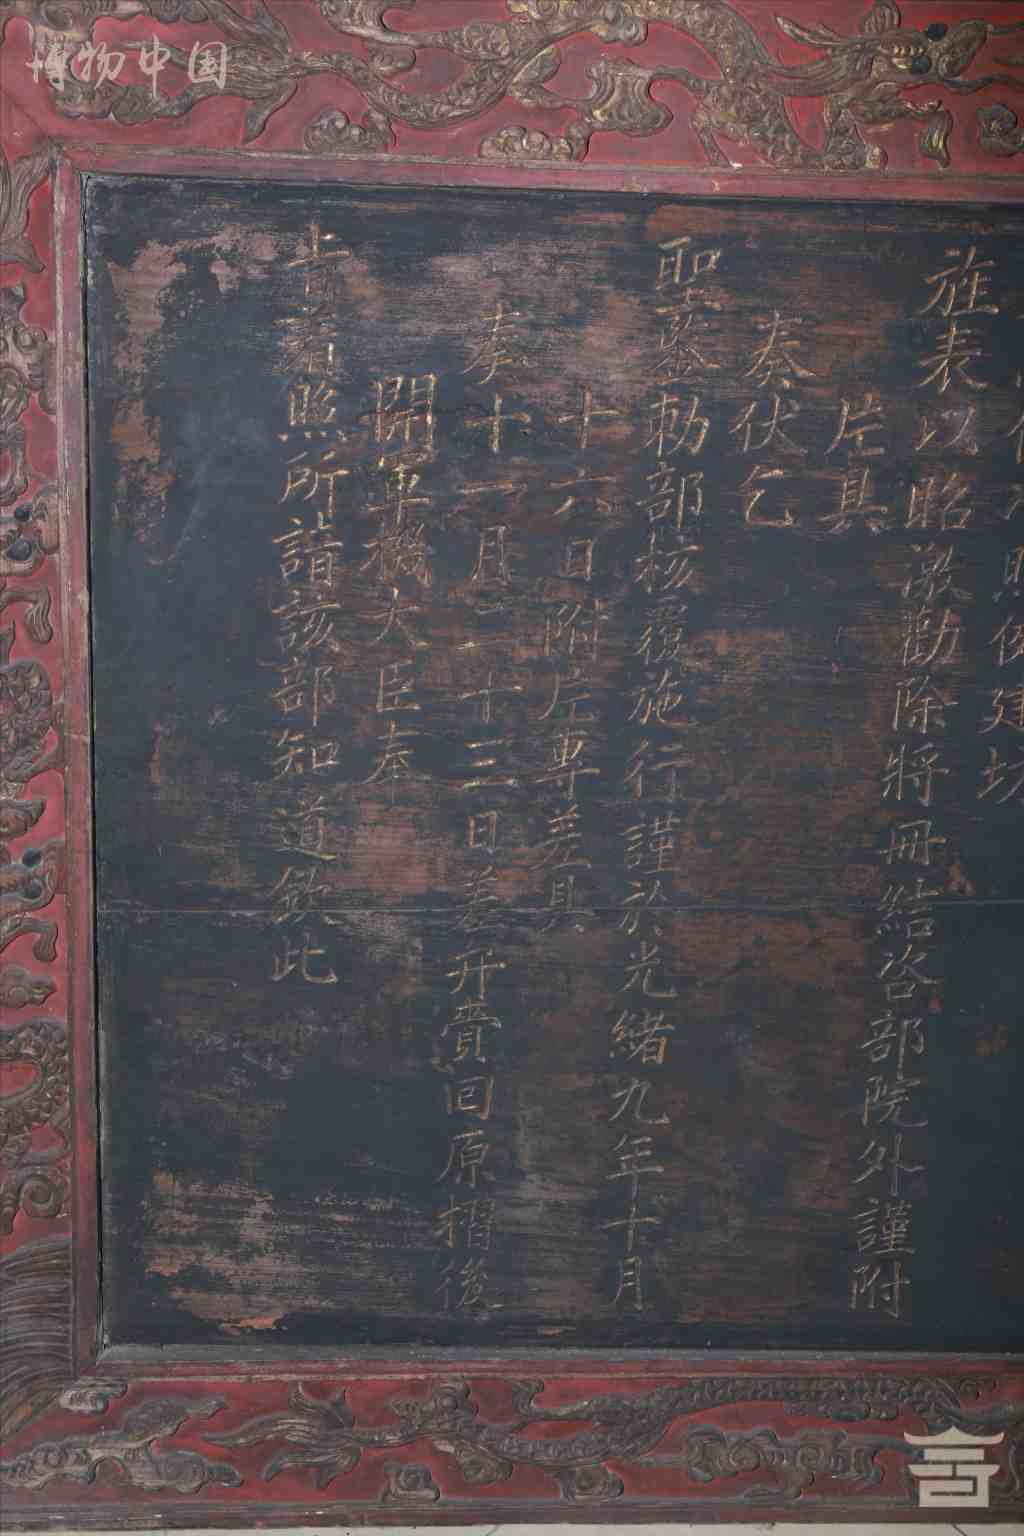 照例建坊
旌表以昭激勸除將冊結咨部院外謹附
片具
奏伏乞
聖鑒勅部核覆施行謹於光緒九年十月
十六日附片專差具
奏十一月二十三日差弁賫回原摺後
開軍機大臣奉
旨著照所請該部知道欽此
博物中国